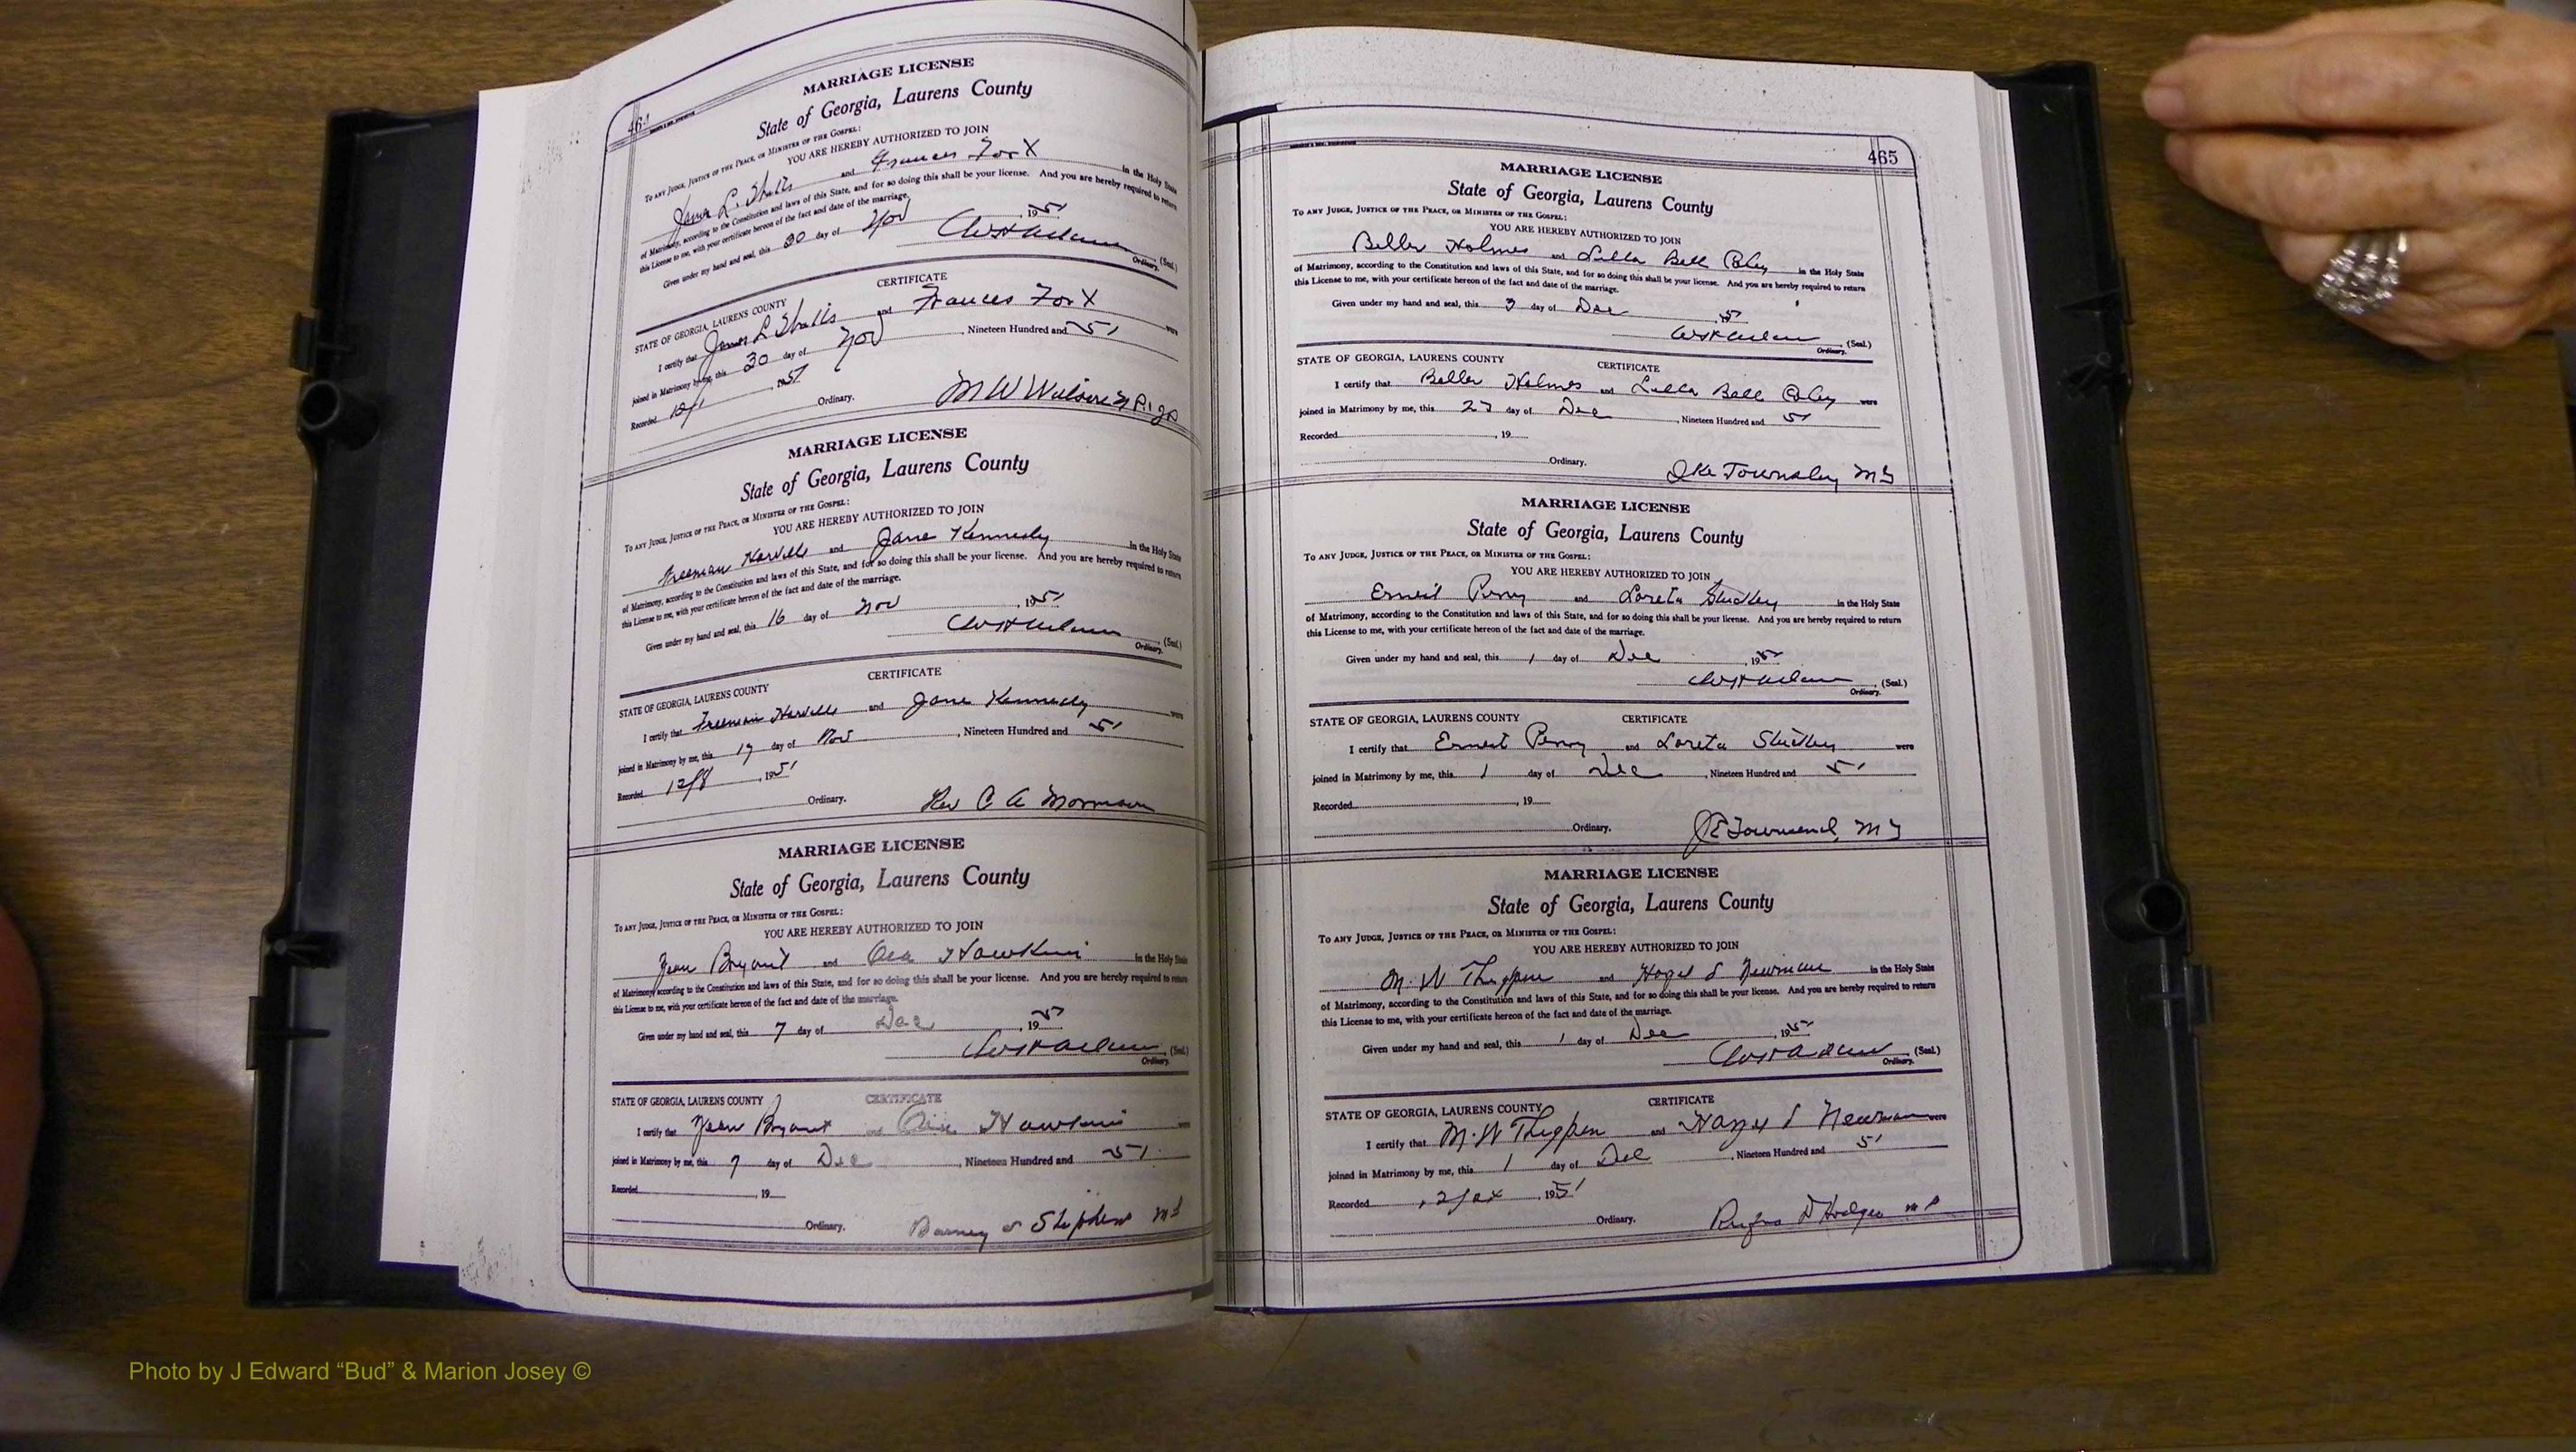 MARRIAGE LICENSE
State of Georgia, Laurens County
TO ANY JUDGE, JUSTICE OF THE PEACE, OR MINISTER OF THE GOSPEL:
YOU ARE HEREBY AUTHORIZED TO JOIN
James L. and Frances in the Holy State
of Matrimony, according to the Constitution and laws of this State, and for so doing this shall be your license. And you are hereby required to return
this License to me, with your certificate hereon of the fact and date of the marriage.
Given under my hand and seal, this 30 day of Nov 1951
(Seal.)
Ordinary.
CERTIFICATE
STATE OF GEORGIA, LAURENS COUNTY
I certify that James L and Frances were
joined in Matrimony by me, this 30 day of Nov, Nineteen Hundred and 51
Recorded 1951
Ordinary.
M W
MARRIAGE LICENSE
State of Georgia, Laurens County
TO ANY JUDGE, JUSTICE OF THE PEACE, OR MINISTER OF THE GOSPEL:
YOU ARE HEREBY AUTHORIZED TO JOIN
Freeman and Jane Kennedy in the Holy State
of Matrimony, according to the Constitution and laws of this State, and for so doing this shall be your license. And you are hereby required to return
this License to me, with your certificate hereon of the fact and date of the marriage.
Given under my hand and seal, this 16 day of Nov, 1951
(Seal.)
Ordinary.
CERTIFICATE
STATE OF GEORGIA, LAURENS COUNTY
I certify that Freeman and Jane Kennedy were
joined in Matrimony by me, this day of Nov, Nineteen Hundred and 51
Recorded 12/8, 1951
Ordinary. Rev C A Morrison
MARRIAGE LICENSE
State of Georgia, Laurens County
TO ANY JUDGE, JUSTICE OF THE PEACE, OR MINISTER OF THE GOSPEL:
YOU ARE HEREBY AUTHORIZED TO JOIN
Bryant and Hawkins in the Holy State
of Matrimony, according to the Constitution and laws of this State, and for so doing this shall be your license. And you are hereby required to return
this License to me, with your certificate hereon of the fact and date of the marriage.
Given under my hand and seal, this 7 day of Dec, 1951
(Seal.)
Ordinary.
STATE OF GEORGIA, LAURENS COUNTY CERTIFICATE
I certify that Bryant and Hawkins were
joined in Matrimony by me, this 7 day of Dec, Nineteen Hundred and 51
Recorded, 19
Ordinary. Barney Stephens
465
MARRIAGE LICENSE
State of Georgia, Laurens County
TO ANY JUDGE, JUSTICE OF THE PEACE, OR MINISTER OF THE GOSPEL:
YOU ARE HEREBY AUTHORIZED TO JOIN
Holmes and Lulla Bell in the Holy State
of Matrimony, according to the Constitution and laws of this State, and for so doing this shall be your license. And you are hereby required to return
this License to me, with your certificate hereon of the fact and date of the marriage.
Given under my hand and seal, this 3 day of Dec 1951
(Seal.)
Ordinary.
STATE OF GEORGIA, LAURENS COUNTY CERTIFICATE
I certify that Holmes and Lulla Bell were
joined in Matrimony by me, this day of Dec, Nineteen Hundred and 51
Recorded, 19
Ordinary. Townsley
MARRIAGE LICENSE
State of Georgia, Laurens County
TO ANY JUDGE, JUSTICE OF THE PEACE, OR MINISTER OF THE GOSPEL:
YOU ARE HEREBY AUTHORIZED TO JOIN
Ernest Perry and Loreta in the Holy State
of Matrimony, according to the Constitution and laws of this State, and for so doing this shall be your license. And you are hereby required to return
this License to me, with your certificate hereon of the fact and date of the marriage.
Given under my hand and seal, this 1 day of Dec, 1951
(Seal.)
Ordinary.
STATE OF GEORGIA, LAURENS COUNTY CERTIFICATE
I certify that Ernest Perry and Loreta were
joined in Matrimony by me, this 1 day of Dec, Nineteen Hundred and 51
Recorded, 19
Ordinary. J E Townsend
MARRIAGE LICENSE
State of Georgia, Laurens County
TO ANY JUDGE, JUSTICE OF THE PEACE, OR MINISTER OF THE GOSPEL:
YOU ARE HEREBY AUTHORIZED TO JOIN
M. W Thigpen and Newman in the Holy State
of Matrimony, according to the Constitution and laws of this State, and for so doing this shall be your license. And you are hereby required to return
this License to me, with your certificate hereon of the fact and date of the marriage.
Given under my hand and seal, this 1 day of Dec, 1951
(Seal.)
Ordinary.
STATE OF GEORGIA, LAURENS COUNTY CERTIFICATE
I certify that M. W Thigpen and Newman were
joined in Matrimony by me, this 1 day of Dec, Nineteen Hundred and 51
Recorded, 1951
Ordinary. Rufus D Hodges
Photo by J Edward “Bud” & Marion Josey ©